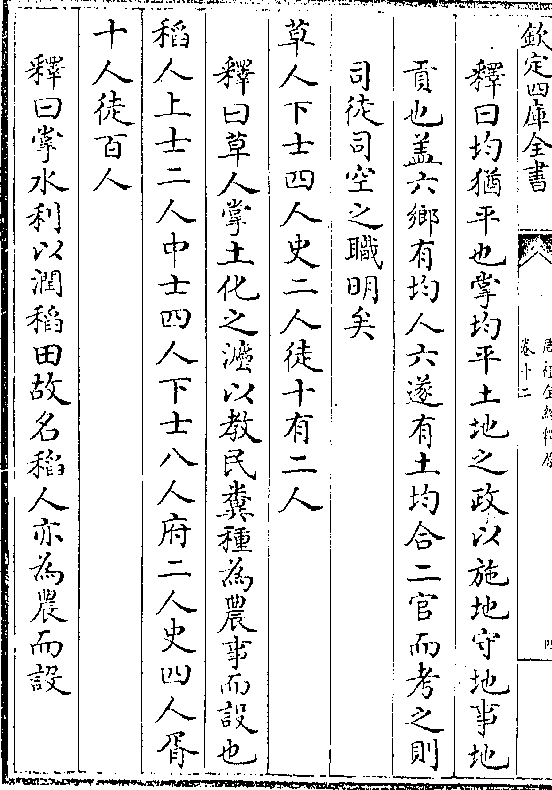 欽定四庫全書
卷十二
釋曰均猶平也掌均平土地之政以施地守地事地
貢也盖六鄉有均人六遂有土均合二官而考之則
司徒司空之職明矣
草人下士四人史二人徒十有二人
釋曰草人掌土化之灋以教民糞種為農事而設也
稻人上士二人中士四人下士八人府二人史四人胥
十人徒百人
釋曰掌水利以潤稻田故名稻人亦為農而設